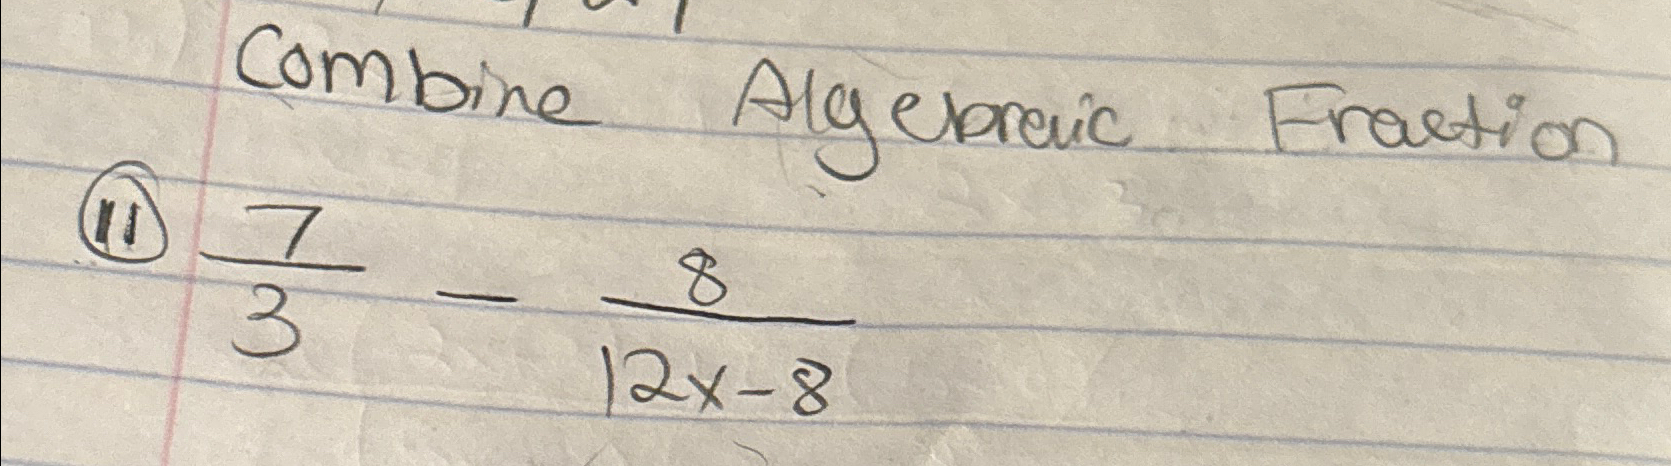 Combine Algebraic Fraction
11 7/3 - 8/12x-8